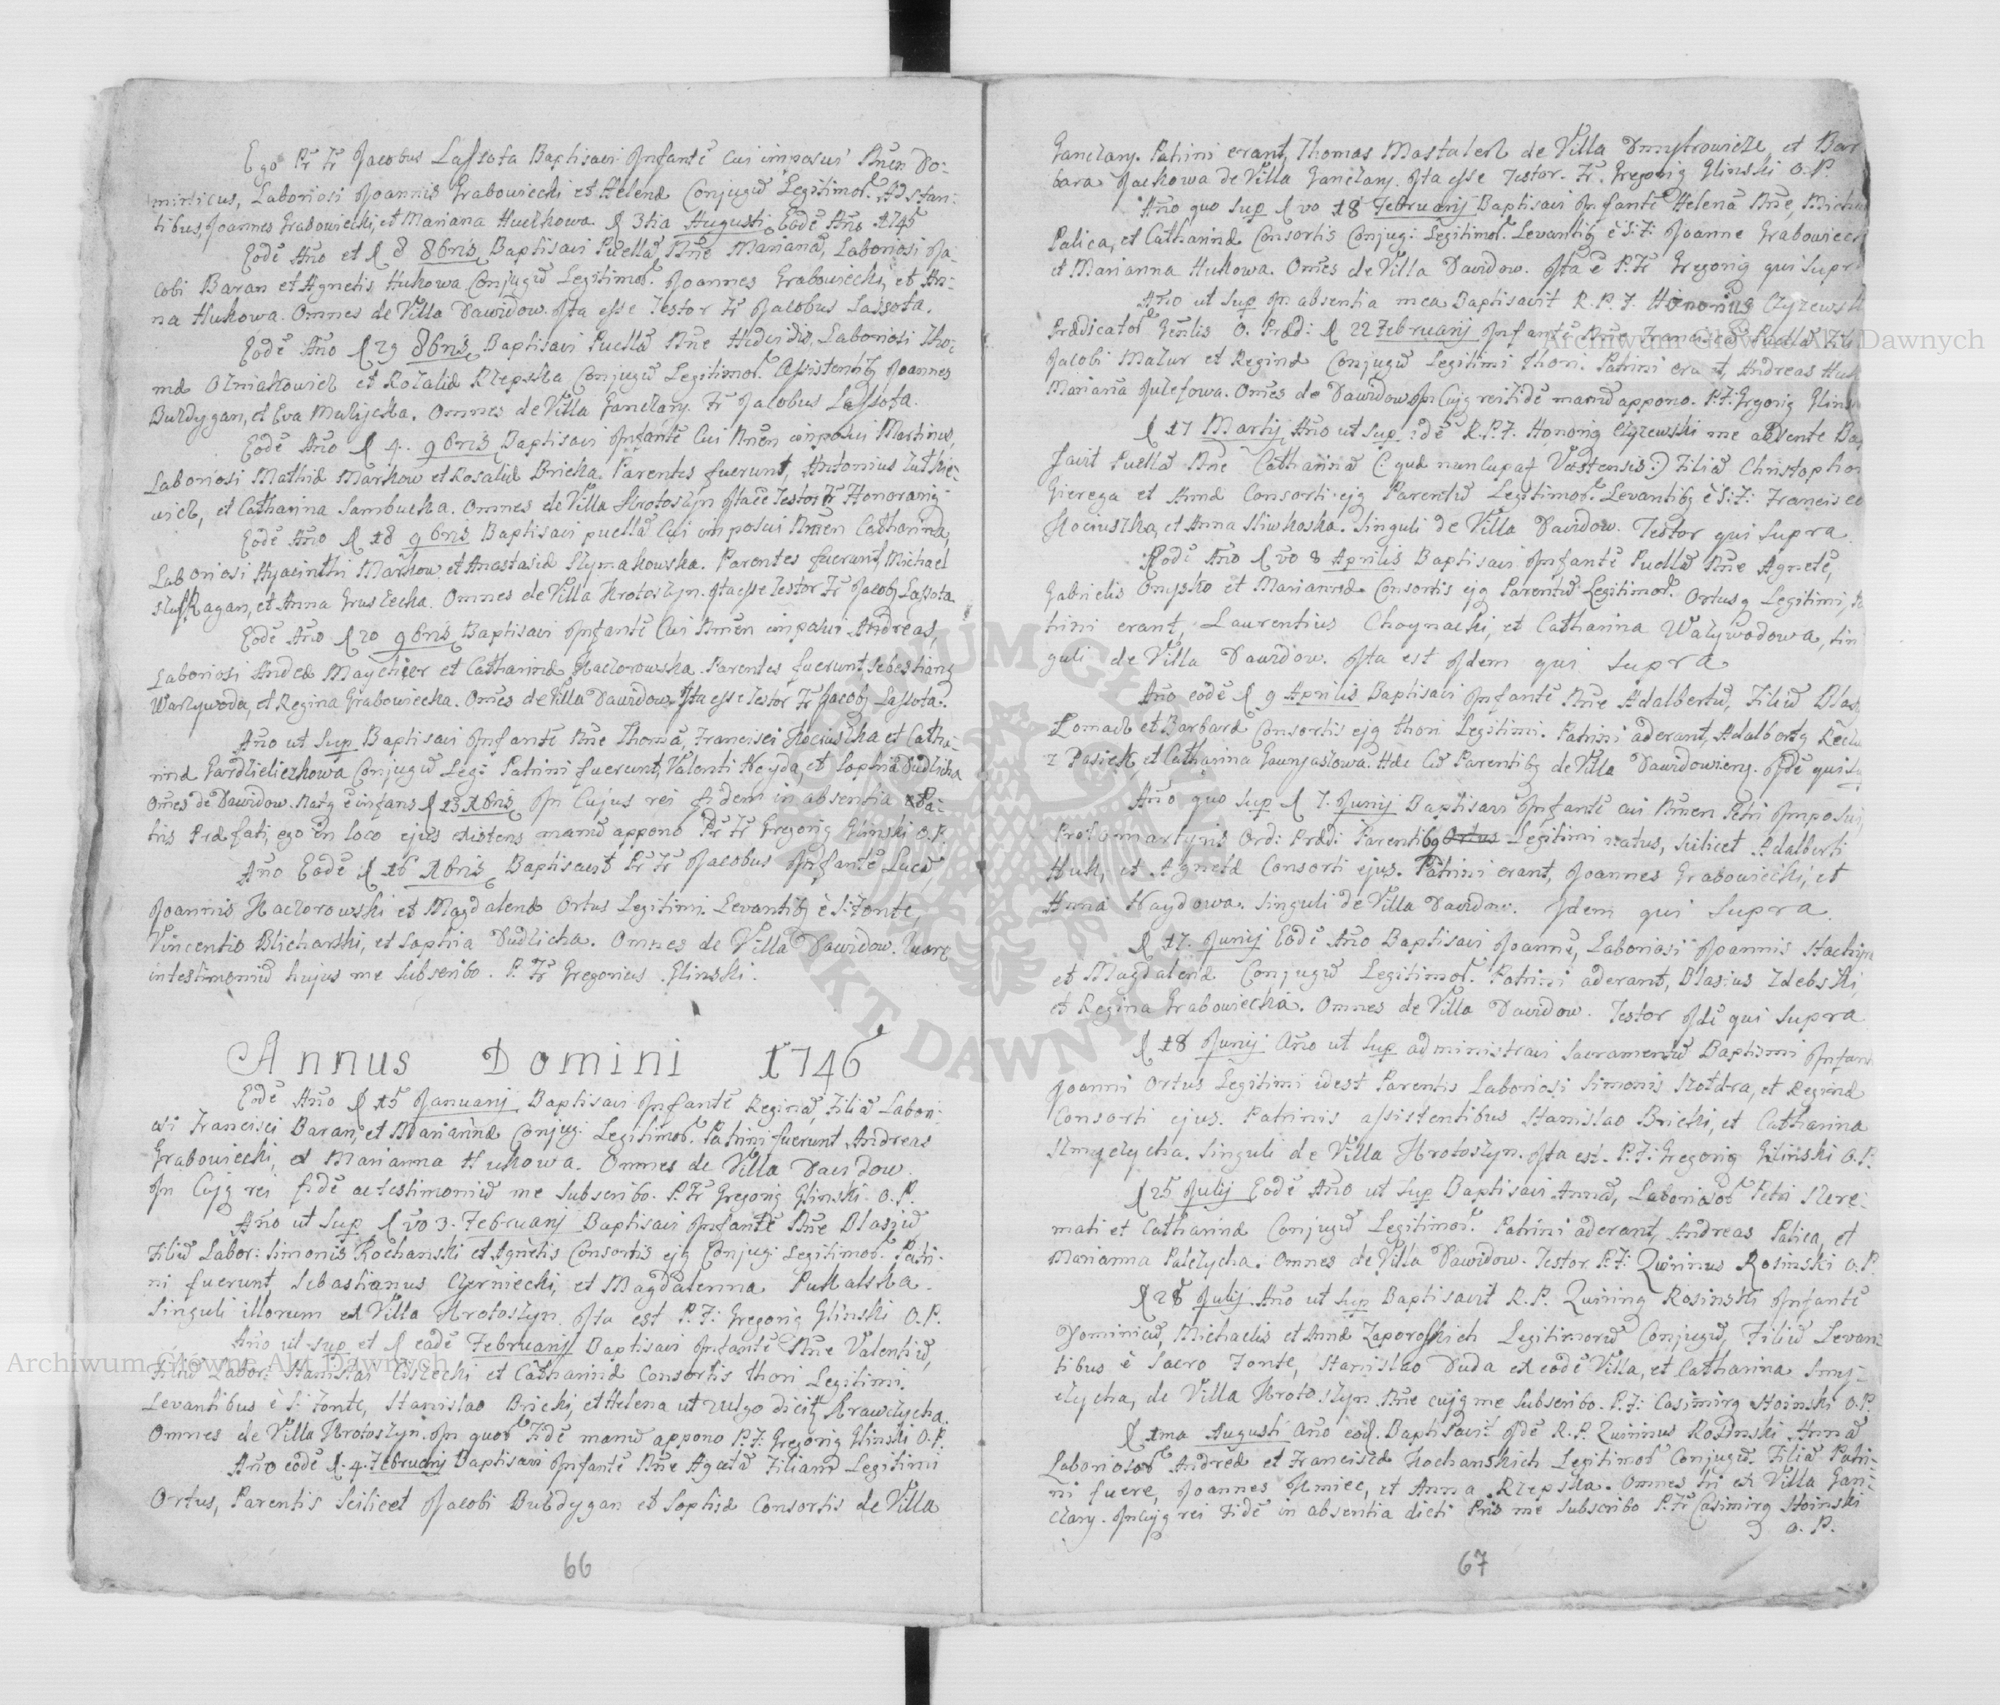 Ego Pr Fr Jacobus Lassota Baptisavi Infantē Cui imposui Nmen Do-
minicus, Laboriosi Joannis Grabowiecki et Helenæ Conjugū Legitimor. Adstan-
tibus, Joannes Grabowiecki, et Mariana Huckowa. D 3tia Augusti Eodē Año 1745
Eodē Año et D 8 8bris Baptisavi Puellā Nñe Marianā, Laboriosi Ja-
cobi Baran et Agnetis Hukowa Conjugū Legitimor. Joannes Grabowiecki, et An-
na Hukowa. Omnes de Villa Dawidow. Ita esse Testor Fr Jacobus Lassota.
Eodē Año D 29 8bris Baptisavi Puellā Nñe Laboriosi Tho-
mæ Ozniakowicz et Rozaliæ Rzepska Conjugū Legitimor. Assistentib Joannes
Burdygan, et Eva Malycka. Omnes de Villa Ganczary. Fr Jacobus Lassota.
Eodē Año D 4. 9bris Baptisavi Infantē Cui Nmen imposui Martinus,
Laboriosi Mathiæ Markow et Rosaliæ Bricka. Parentes fuerunt, Antonius Lutkie-
wicz, et Catharina Sambucka. Omnes de Villa Krotoszyn Ita eē Testor Fr
Eodē Año D 18 9bris Baptisavi puellā Cui imposui Nmen Catharina,
Laboriosi Hyacinthi Markow, et Anastasiæ Szymakowska. Parentes fuerunt Michael
et Anna Gruszecka. Omnes de Villa Krotoszyn. Ita esse Testor Fr Jacob Lassota
Eodē Año D 20 9bris Baptisavi Infantē Cui Nmen imposui Andreas,
Laboriosi Andreæ Maycher et Catharinæ Kaczorowska. Parentes fuerunt, Sebestian
Warzywoda, et Regina Grabowiecka. Omēs de Villa Dawidow. Ita esse Testor Fr Jacob Lassota.
Año ut Sup Baptisavi Infantē Nñe Thomā, Francisci Kociuszka et Catha-
rinæ Conjugū Legi: Patrini fuerunt, Valenti Nayda, et Sophia Dudlicha
Omēs de Dawidow. Natg ē infans D 13 Xbris In Cujus rei fidem in absentia Pa-
tris Præfati, ego in loco ejus existens manū appono Pr Fr Gregorig Glinski O.P.
Año Eodē D 16 Xbris Baptisavit Pr Fr Jacobus Infantē Lucā,
Joannis Kaczorowski et Magdalenæ Ortus Legitimi. Levantib è S. Fonte,
Vincentio Blicharski, et Sophia Dudlicha. Omnes de Villa Dawidow.
in testimoniū hujus me Subscribo. P. Fr Gregorius Glinski.
Annus Domini 1746
Eodē Año D 15 Januarij Baptisavi Infantē Reginā, Filiā Labori-
osi Francisci Baran, et Mariannæ Conjug. Legitimor. Patrini fuerunt Andreas
Grabowiecki, et Marianna Hukowa. Omnes de Villa Dawidow.
In Cujg rei fidē ac testimoniū me Subscribo. P. Fr Gregorig Glinski. O.P.
Año ut Sup D vō 3. Februarij Baptisavi Infantē Nñe Blasiū
Filiū Labor: Simonis Kochanski et Agnetis Consortis ejg Conjug: Legitimor. Patri-
ni fuerunt, Sebastianus Czerniecki, et Magdalenna Pukalska.
Singuli illorum ex Villa Krotoszyn. Ita est P.F: Gregorig Glinski O.P.
Año ut sup et D eadē Februarij Baptisavi Infantē Nñe Valentiū,
Filiū Labor: Stanislai et Catharinæ Consortis thori Legitimi.
Levantibus è S: Fonte, Stanislao Bricki, et Helena ut vulgo dicit Krawczycha.
Omnes de Villa Krotoszyn. In quor Fidē manū appono P.F: Gregorig Glinski O.P.
Año eodē D. 4. Februarij Baptisavi Infantē Nñe Agatā Filiam Legitimi
Ortus, Parentis Scilicet Jacobi Burdygan et Sophiæ Consortis de Villa
66
Ganczary. Patrini erant, Thomas Mastalerz de Villa Dmytrowicze, et Bar
bara Jackowa de Villa Ganczary. Ita esse Testor. Fr. Gregorig Glinski O.P.
Año quo Sup D vō 18 Februarij Baptisavi Infantē Helenā Nñe, Micha
Palica, et Catharinæ Consortis Conjug: Legitimor. Levantib è S: F: Joanne Grabowieck
et Marianna Hukowa. Omēs de Villa Dawidow. Ita ē P. Fr Gregorig qui Supr
Año ut Sup In absentia mea Baptisavit R.P.F. Honorius Czyzewsk
Prædicator Genlis O. Præd: D 22 Februarij Infantē Nñe
Jacobi Mazur et Reginæ Conjugū Legitimi thori. Patrini erant Andreas Huk
Marianā Julefowa. Omēs de Dawidow In Cujg rei fidē manū appono. P.F: Gregorig Glins
D 17 Martij Año ut Sup idē R.P.F. Honorig Czyzewski me absente Bap
Favit Puellā Nñe Catharinā Filiā Christophor
Gierega et Annæ Consorti ejg Parentū Legitimor. Levantib è S: F: Francisco
Kociuszka, et Anna Sliwkoska. Singuli de Villa Dawidow. Testor qui Supra.
Eodē Año D vō 8 Aprilis Baptisavi Infantē Puellā Nñe Agnetē,
Gabrielis Onysko et Mariannæ Consortis ejg Parentū Legitimor. Ortusq Legitimi,
trini erant, Laurentius Choynacki, et Catharina Warzywodowa, Sin
guli de Villa Dawidow. Ita est Idem qui Supra
Año eodē D 9 Aprilis Baptisavi Infantē Nñe Adalbertū, Filiū Blas
Lomacz et Barbaræ Consortis ejg thori Legitimi. Patrini aderant, Adalbertg
z Pasiek, et Catharina Hæc Cū Parentib de Villa
Año quo Sup D 7. Junij Baptisavi Infantē cui Nmen Petri Imposui,
Protomartyris Ord: Præd: Parentibg Legitimi natus, scilicet Adalberti
Huk, et Agnetæ Consorti ejus. Patrini erant, Joannes Grabowiecki, et
Anna Naydowa. Singuli de Villa Dawidow. Idem qui Supra.
D 17. Junij Eodē Año Baptisavi Joannē, Laboriosi Joannis
et Magdalenæ Conjugū Legitimor. Patrini aderant, Blasius Zdebski,
et Regina Grabowiecka. Omnes de Villa Dawidow. Testor Idē qui Supra
D 18 Junij Año ut Sup administravi Sacramentū Baptismi Infan
Joanni Ortus Legitimi idest Parentis Laboriosi Simonis Szoldra, et Reginæ
Consorti ejus. Patrinis assistentibus Stanislao Bricki, et Catharina
Singuli de Villa Krotoszyn. Ita est. P.F: Gregorig Glinski O.P.
D 25 Julij Eodē Año ut Sup Baptisavi Annā, Laboriosor Petri Szere-
mati et Catharinæ Conjugū Legitimor. Patrini aderant, Andreas Palica, et
Marianna Palczycha. Omnes de Villa Dawidow. Testor P.F: Quirinus Rosinski O.P.
D 28 Julij. Año ut Sup Baptisavit R.P. Quiring Rosinski Infantē
Dominicū, Michaelis et Annæ Legitimorū Conjugū, Filiū Levan-
tibus è Sacro Fonte, Stanislao Duda ex eadē Villa, et Catharina Smy-
czycha, de Villa Krotoszyn. Nñe cujg me Subscribo. P.F: Casimirg Stoinski O.P.
D 1ma Augusti Año eod. Baptisavit Idē R.P. Quirinus Rosinski Annā
Laboriosor Andreæ et Franciscæ Kochanskich Legitimor Conjugū. Filiā Patri-
ni fuere, Joannes Kmiec, et Anna Rzepska. Omnes hi ex Villa Gan-
czary. In cujg rei Fidē in absentia dicti Pris me Subscribo P. Fr Casimirg Stoinski
O.P.
67
Archiwum Główne Akt Dawnych
Archiwum Główne Akt Dawnych
ARCHIWUM GŁÓWNE AKT DAWNYCH